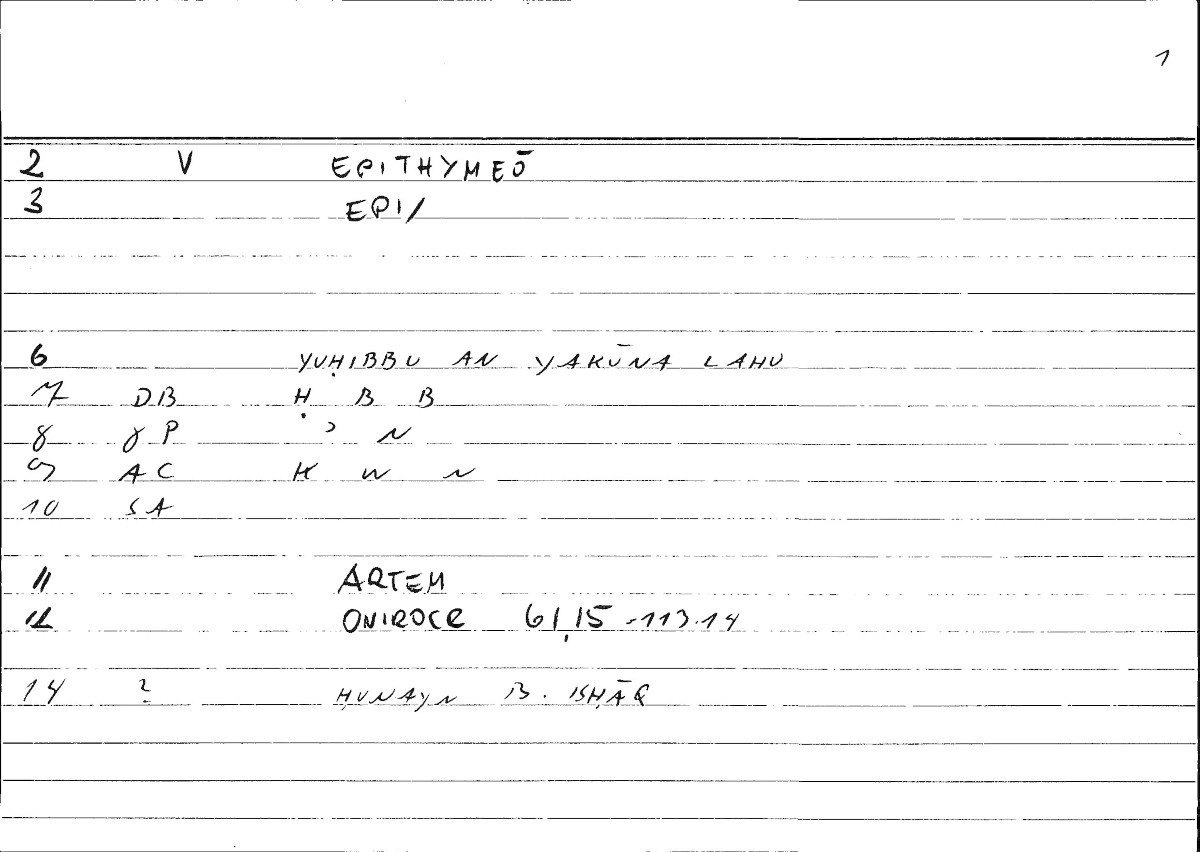 1
2 V EPITHYMEŌ
3 EPI/
6 YUḤIBBU AN YAKŪNA LAHU
7 DB Ḥ B B
8 γP ʾ N
9 AC K W N
10 SA
11 ARTEM
12 ONIROCR 61,15 - 113.14
14 ? ḤUNAYN B. ISḤĀQ